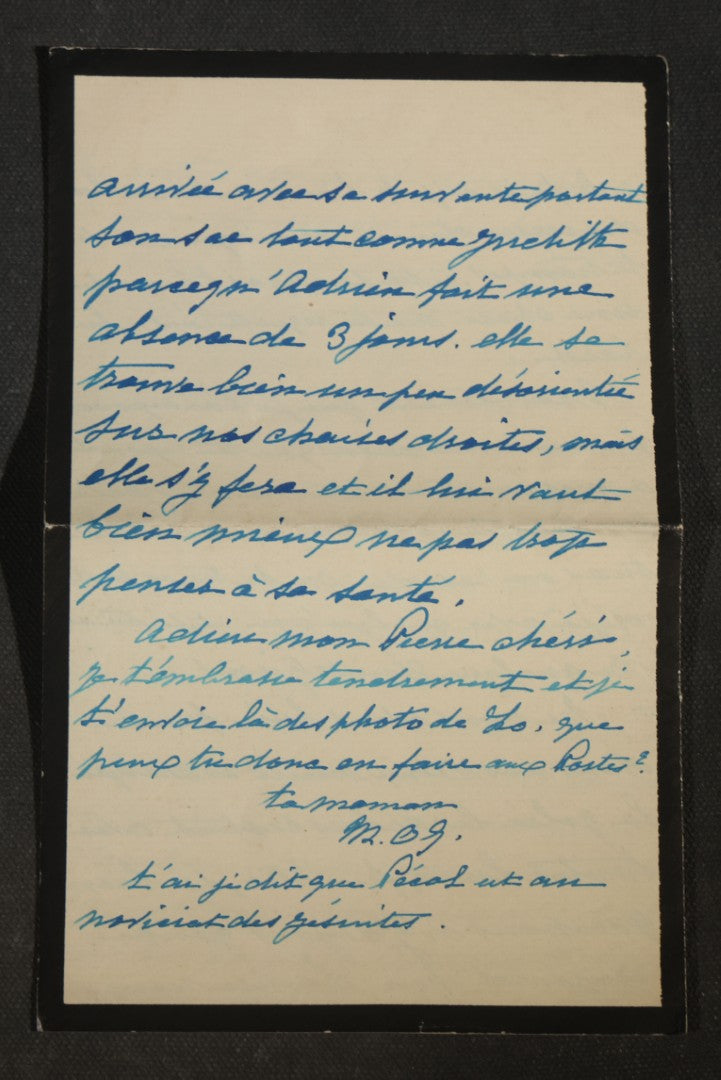 arrivée avec sa servante portant
son sac tout comme Judith
parcequ'Adrien fait une
absence de 3 jours. elle se
trouve bien un peu désorientée
sur nos chaises droites, mais
elle s'y fera et il lui vaut
bien mieux ne pas trop
penser à sa santé.
Adieu mon Pierre chéri,
je t'embrasse tendrement et je
t'envoie là des photo de Lo. que
peux tu donc en faire aux Postes?
ta maman
M. O G.
t'ai je dit que est au
noviciat des Jésuites.